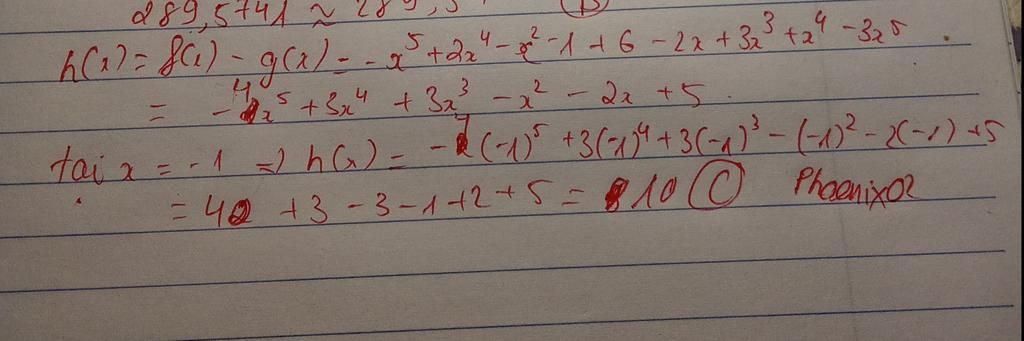 289,5741 ≈ 289,5 (B)
h(x) = f(x) - g(x) = -x⁵ + 2x⁴ - x² - 1 + 6 - 2x + 3x³ + x⁴ - 3x⁵
= -4x⁵ + 3x⁴ + 3x³ - x² - 2x + 5.
tại x = -1 => h(x) = -4(-1)⁵ + 3(-1)⁴ + 3(-1)³ - (-1)² - 2(-1) + 5
= 4 + 3 - 3 - 1 + 2 + 5 = 10 (C) Phoenix02